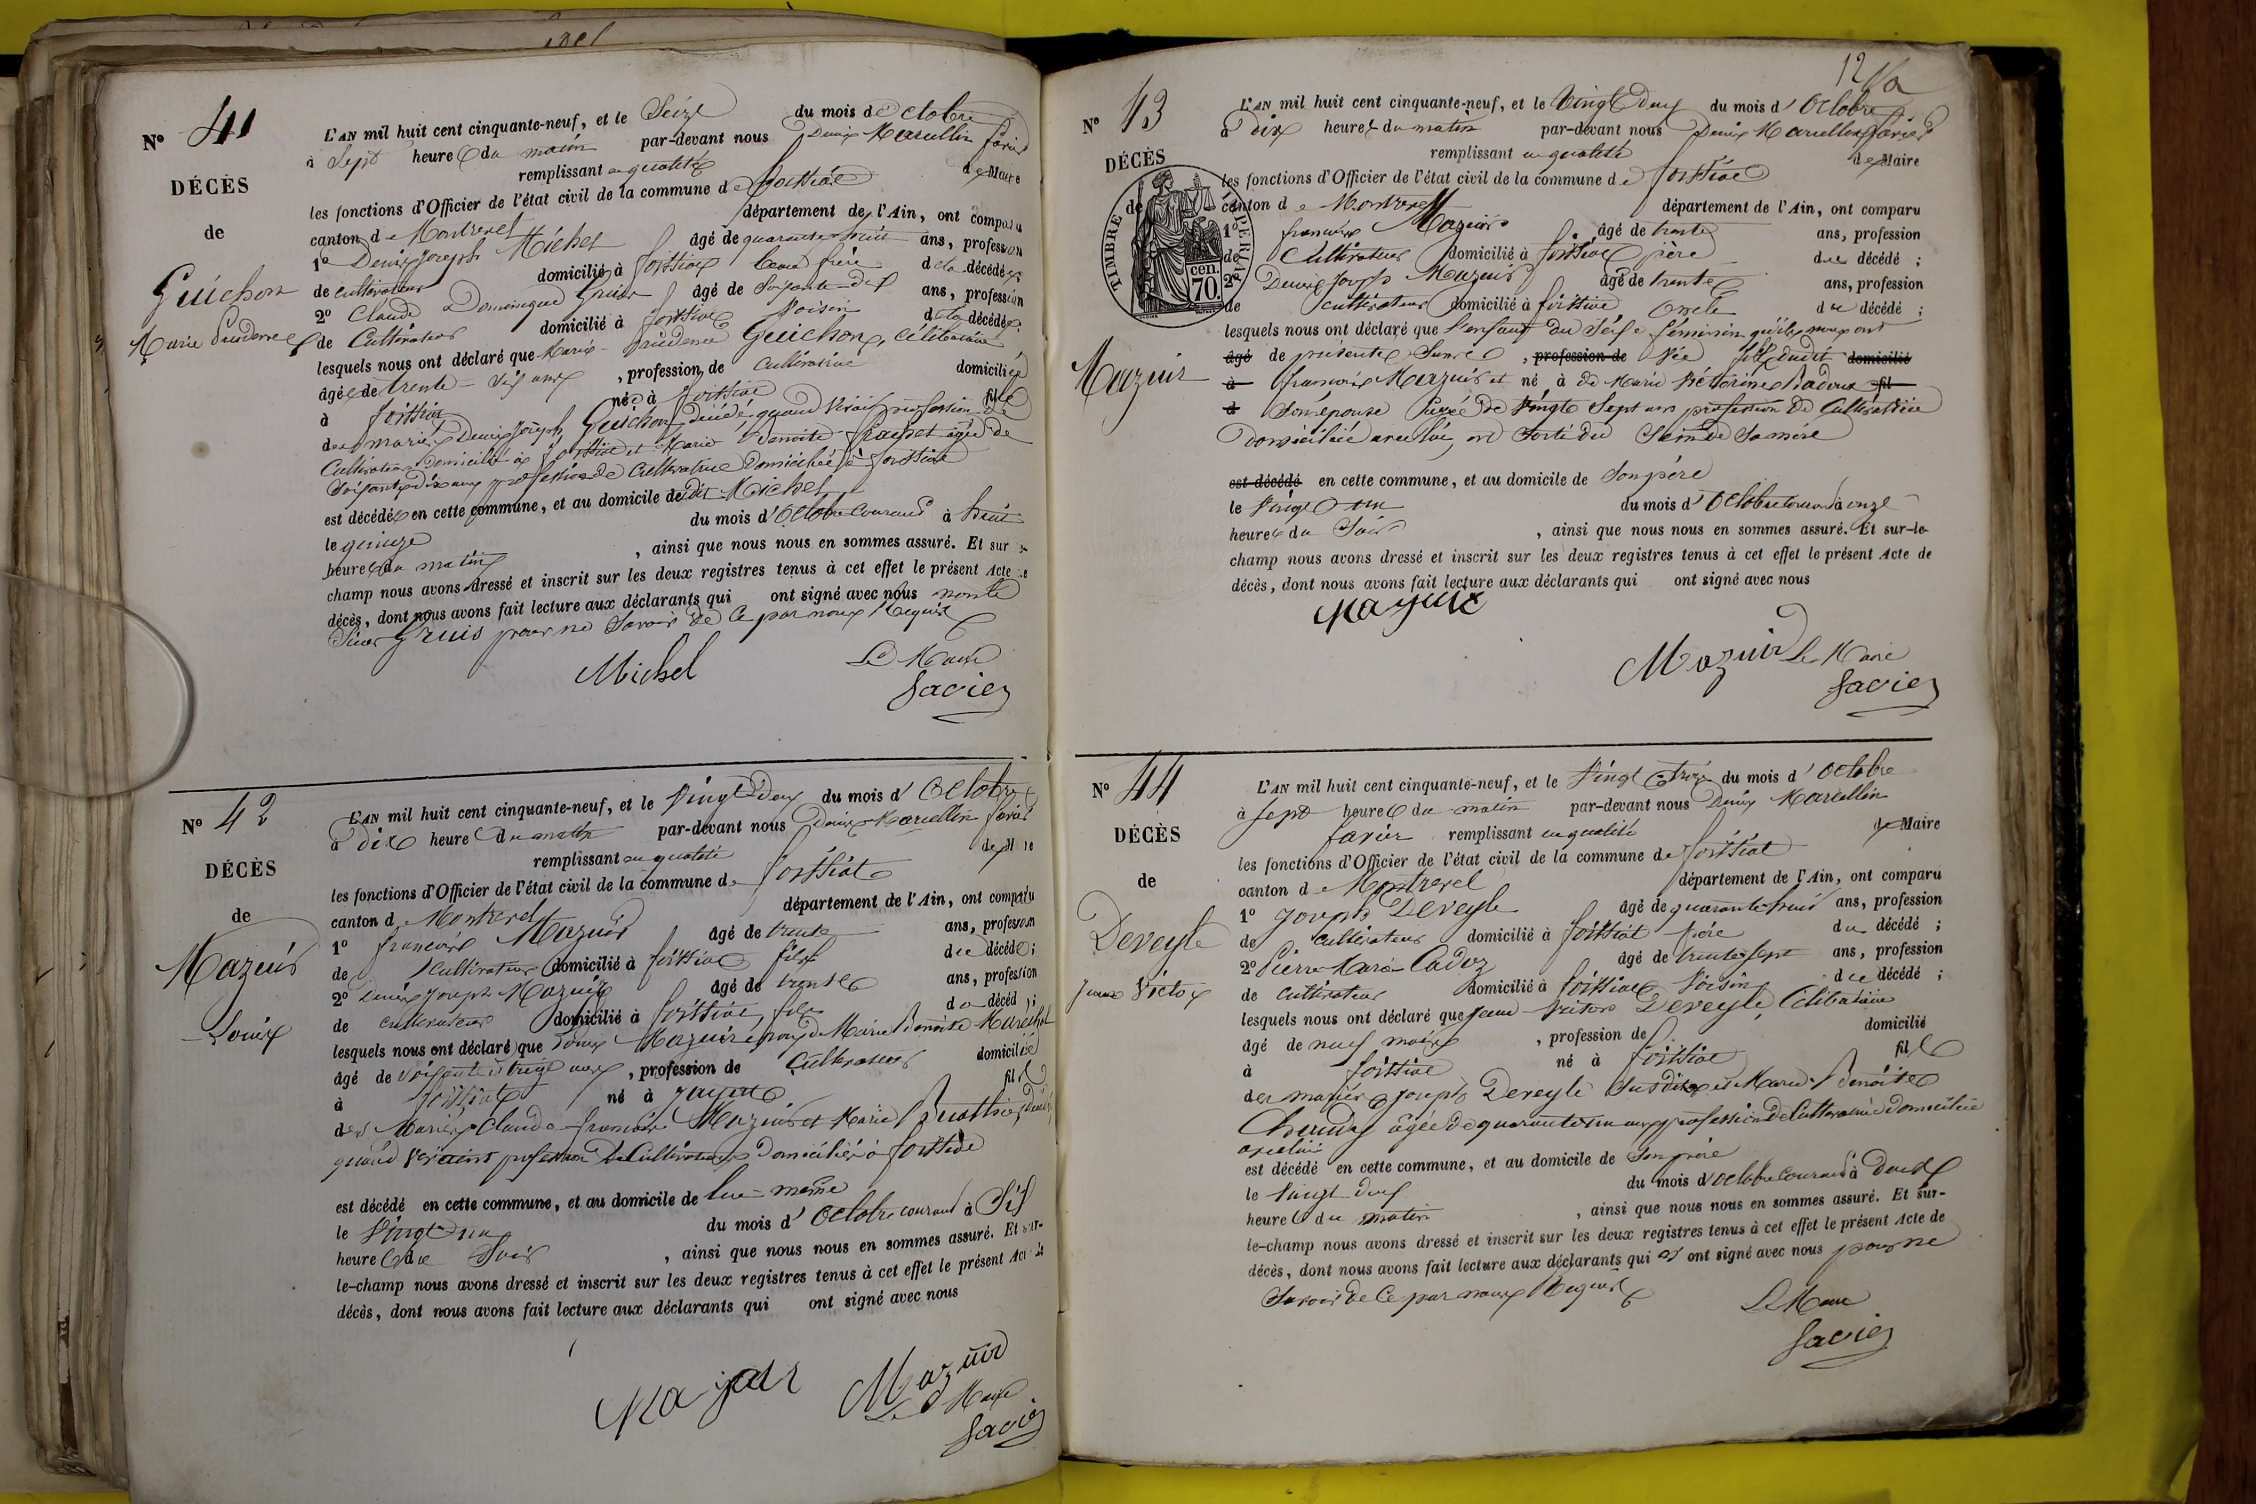 N° 41
DÉCÈS
de
Guichon
Marie Prudence
L'AN mil huit cent cinquante-neuf, et le Seize du mois d'Octobre
à Sept heures du matin par-devant nous Denis Marcellin favier
remplissant en qualité de Maire
les fonctions d'Officier de l'état civil de la commune de foissiat
canton de Montrevel département de l'Ain, ont comparu
1° Denis joseph Michel âgé de quarante huit ans, profession
de cultivateur domicilié à foissiat beau frère de la décédée
2° Claude Dominique Gruis âgé de Soixante dix ans, profession
de Cultivateur domicilié à foissiat Voisin de la décédée
lesquels nous ont déclaré que Marie prudence Guichon, Célibataire
âgée de trente-six ans, profession de Cultivatrice domiciliée
à foissiat née à foissiat fille
des mariés Denis joseph Guichon Décédé quand vivait profession de
Cultivateur domicilié à foissiat et Marie Benoite âgée de
Soixante dix ans profession de Cultivatrice Domiciliée à foissiat
est décédée en cette commune, et au domicile du dit Michel
le quinze du mois d'Octobre courant à huit
heures du matin, ainsi que nous nous en sommes assuré. Et sur
champ nous avons dressé et inscrit sur les deux registres tenus à cet effet le présent Acte de
décès, dont nous avons fait lecture aux déclarants qui ont signé avec nous non le
Sieur Gruis pour ne Savoir de Ce par nous Requis
Michel Le Maire
favier
N° 42
DÉCÈS
de
Mazuir
Louis
L'AN mil huit cent cinquante-neuf, et le Vingt Deux du mois d'Octobre
à dix heures du matin par-devant nous Denis Marcellin favier
remplissant en qualité de Maire
les fonctions d'Officier de l'état civil de la commune de foissiat
canton de Montrevel département de l'Ain, ont comparu
1° françois Mazuir âgé de trente ans, profession
de Cultivateur domicilié à foissiat fils du décédé;
2° Denis Joseph Mazuir âgé de trente ans, profession
de cultivateur domicilié à foissiat, fils du décédé;
lesquels nous ont déclaré que Louis Mazuir époux de Marie Benoite Marechal
âgé de Soixante et treize ans, profession de Cultivateur domicilié
à foissiat né à Jayat fils
des Mariés Claude françois Mazuir et Marie Buathier, Décédés
quand vivaient profession de Cultivateurs Domiciliés à foissiat
est décédé en cette commune, et au domicile de lui-même
le Vingt un du mois d'Octobre courant à Six
heures du Soir, ainsi que nous nous en sommes assuré. Et sur-
le-champ nous avons dressé et inscrit sur les deux registres tenus à cet effet le présent Acte de
décès, dont nous avons fait lecture aux déclarants qui ont signé avec nous
Mazuir Mazuir
Le Maire
favier
12
N° 43
DÉCÈS
de
TIMBRE IMPERIAL
70 cen.
Mazuir
L'AN mil huit cent cinquante-neuf, et le Vingt Deux du mois d'Octobre
à Dix heures du matin par-devant nous Denis Marcellin favier
remplissant en qualité de Maire
les fonctions d'Officier de l'état civil de la commune de foissiat
canton de Montrevel département de l'Ain, ont comparu
1° françois Mazuir âgé de trente ans, profession
de Cultivateur domicilié à foissiat père du décédé;
2° Denis Joseph Mazuir âgé de trente ans, profession
de cultivateur domicilié à foissiat oncle du décédé;
lesquels nous ont déclaré que l'enfant du Sexe féminin qu'ils nous ont
âgé de présenté Sans vie, profession de Née fille dudit domicilié
à françois Mazuir et né à de Marie Victorine Badoux fil
d Son épouse âgée de Vingt Sept ans profession de Cultivatrice
Domiciliée avec lui, est Sorti du Sein de Sa mère
est décédé en cette commune, et au domicile de Son père
le Vingt un du mois d'Octobre courant à onze
heures du Soir, ainsi que nous nous en sommes assuré. Et sur-le-
champ nous avons dressé et inscrit sur les deux registres tenus à cet effet le présent Acte de
décès, dont nous avons fait lecture aux déclarants qui ont signé avec nous
Mazuir
Mazuir Le Maire
favier
N° 44
DÉCÈS
de
Deveyle
Jean Victor
L'AN mil huit cent cinquante-neuf, et le Vingt trois du mois d'Octobre
à Sept heures du matin par-devant nous Denis Marcellin
favier remplissant en qualité de Maire
les fonctions d'Officier de l'état civil de la commune de foissiat
canton de Montrevel département de l'Ain, ont comparu
1° Joseph Deveyle âgé de quarante trois ans, profession
de Cultivateur domicilié à foissiat père du décédé;
2° Pierre Marie Cadoz âgé de trente sept ans, profession
de Cultivateur domicilié à foissiat Voisin du décédé;
lesquels nous ont déclaré que jean Victor Deveyle, Célibataire
âgé de neuf mois, profession de domicilié
à foissiat né à foissiat fils
des mariés Joseph Deveyle Susdit et Marie Benoite
âgée de quarante un ans profession de Cultivatrice domiciliée
avec lui
est décédé en cette commune, et au domicile de Son père
le Vingt deux du mois d'octobre courant à Douze
heures du matin, ainsi que nous nous en sommes assuré. Et sur-
le-champ nous avons dressé et inscrit sur les deux registres tenus à cet effet le présent Acte de
décès, dont nous avons fait lecture aux déclarants qui ont signé avec nous pour ne
Savoir de Ce par nous Requis
Le Maire
favier